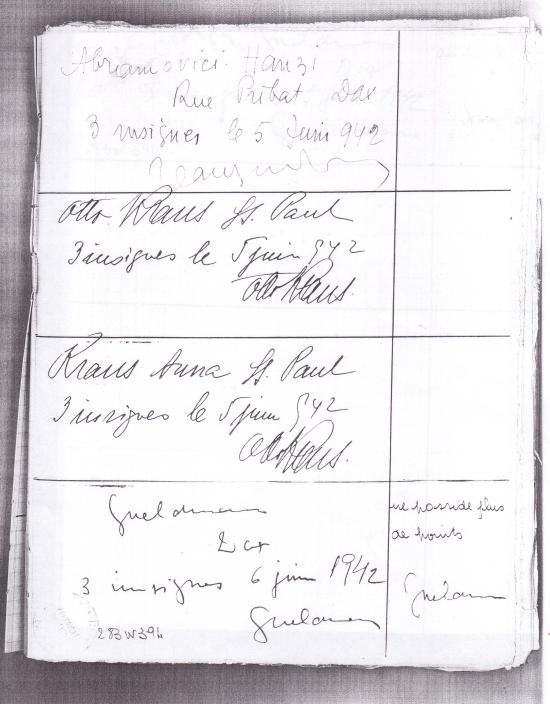 Abramovici Hanzi
Rue Pribat Dax
3 insignes le 5 Juin 942
Otto Kraus St. Paul
3 insignes le 5 juin 942
Otto Kraus.
Kraus Anna St. Paul
3 insignes le 5 juin 942
Otto Kraus.
Gueldmann
Dax
3 insignes 6 juin 1942
ne possède plus
de points
283W394